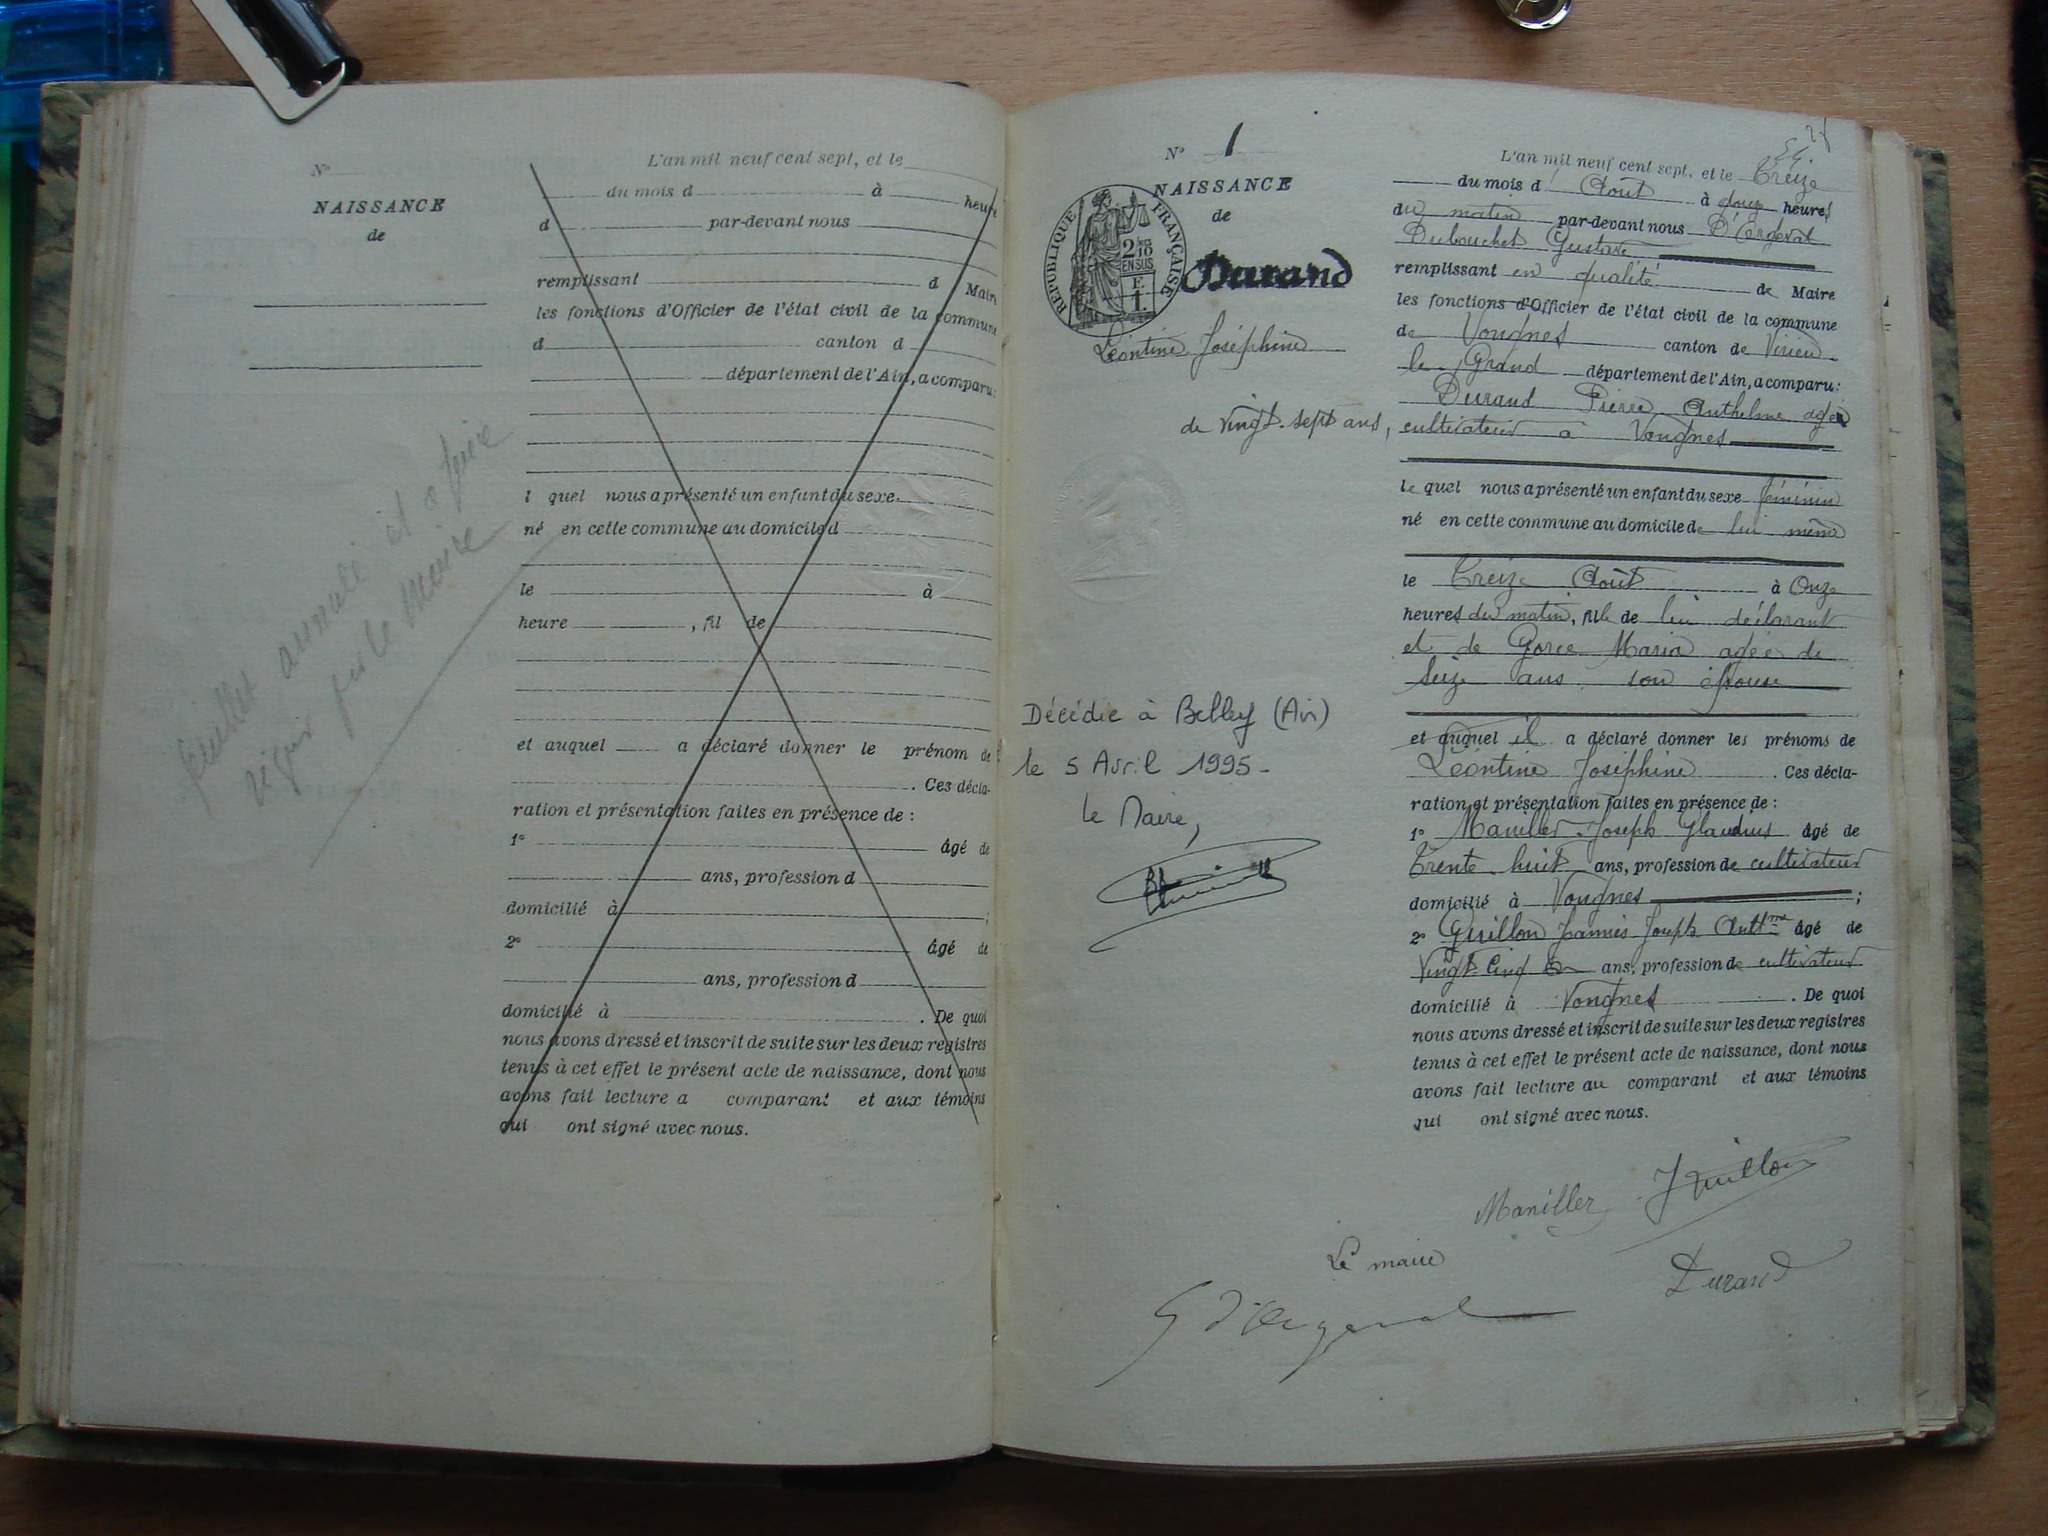 N°
NAISSANCE
de
L'an mil neuf cent sept, et le
du mois d à heure
d par-devant nous
remplissant d Maire
les fonctions d'Officier de l'état civil de la commune
d canton d
département de l'Ain, a comparu:
l quel nous a présenté un enfant du sexe
né en cette commune au domicile d
le à
heure , fil de
et auquel a déclaré donner le prénom de
. Ces décla-
ration et présentation faites en présence de :
1° âgé de
ans, profession d
domicilié à ;
2° âgé de
ans, profession d
domicilié à . De quoi
nous avons dressé et inscrit de suite sur les deux registres
tenus à cet effet le présent acte de naissance, dont nous
avons fait lecture a comparant et aux témoins
qui ont signé avec nous.
feuillet annulé
par le Maire
N° 1
NAISSANCE
de
RÉPUBLIQUE FRANÇAISE
2/10
EN SUS
F.
1.
Durand
Léontine Joséphine
de vingt-sept ans,
Décédée à Belley (Ain)
le 5 Avril 1995-
le Maire,
L'an mil neuf cent sept, et le Treize
du mois d' Août à douze heures
du matin par-devant nous D'Ergeval
Dubouchet Gustave
remplissant en qualité de Maire
les fonctions d'Officier de l'état civil de la commune
de Vongnes canton de Virieu
le Grand département de l'Ain, a comparu:
Durand Pierre Anthelme agé
cultivateur à Vongnes
le quel nous a présenté un enfant du sexe féminin
né en cette commune au domicile de lui même
le Treize Août à Onze
heures du matin, fille de lui déclarant
et de Gorce Maria agée de
Seize ans son épouse
et auquel il a déclaré donner les prénoms de
Léontine Joséphine . Ces décla-
ration et présentation faites en présence de :
1° Maniller Joseph Glaudius âgé de
Trente huit ans, profession de cultivateur
domicilié à Vongnes ;
2° Guillon Joannès Joseph Anthme âgé de
Vingt Cinq ans, profession de cultivateur
domicilié à Vongnes . De quoi
nous avons dressé et inscrit de suite sur les deux registres
tenus à cet effet le présent acte de naissance, dont nous
avons fait lecture au comparant et aux témoins
qui ont signé avec nous.
Maniller J Guillon
Le maire Durand
G d'Ergeval